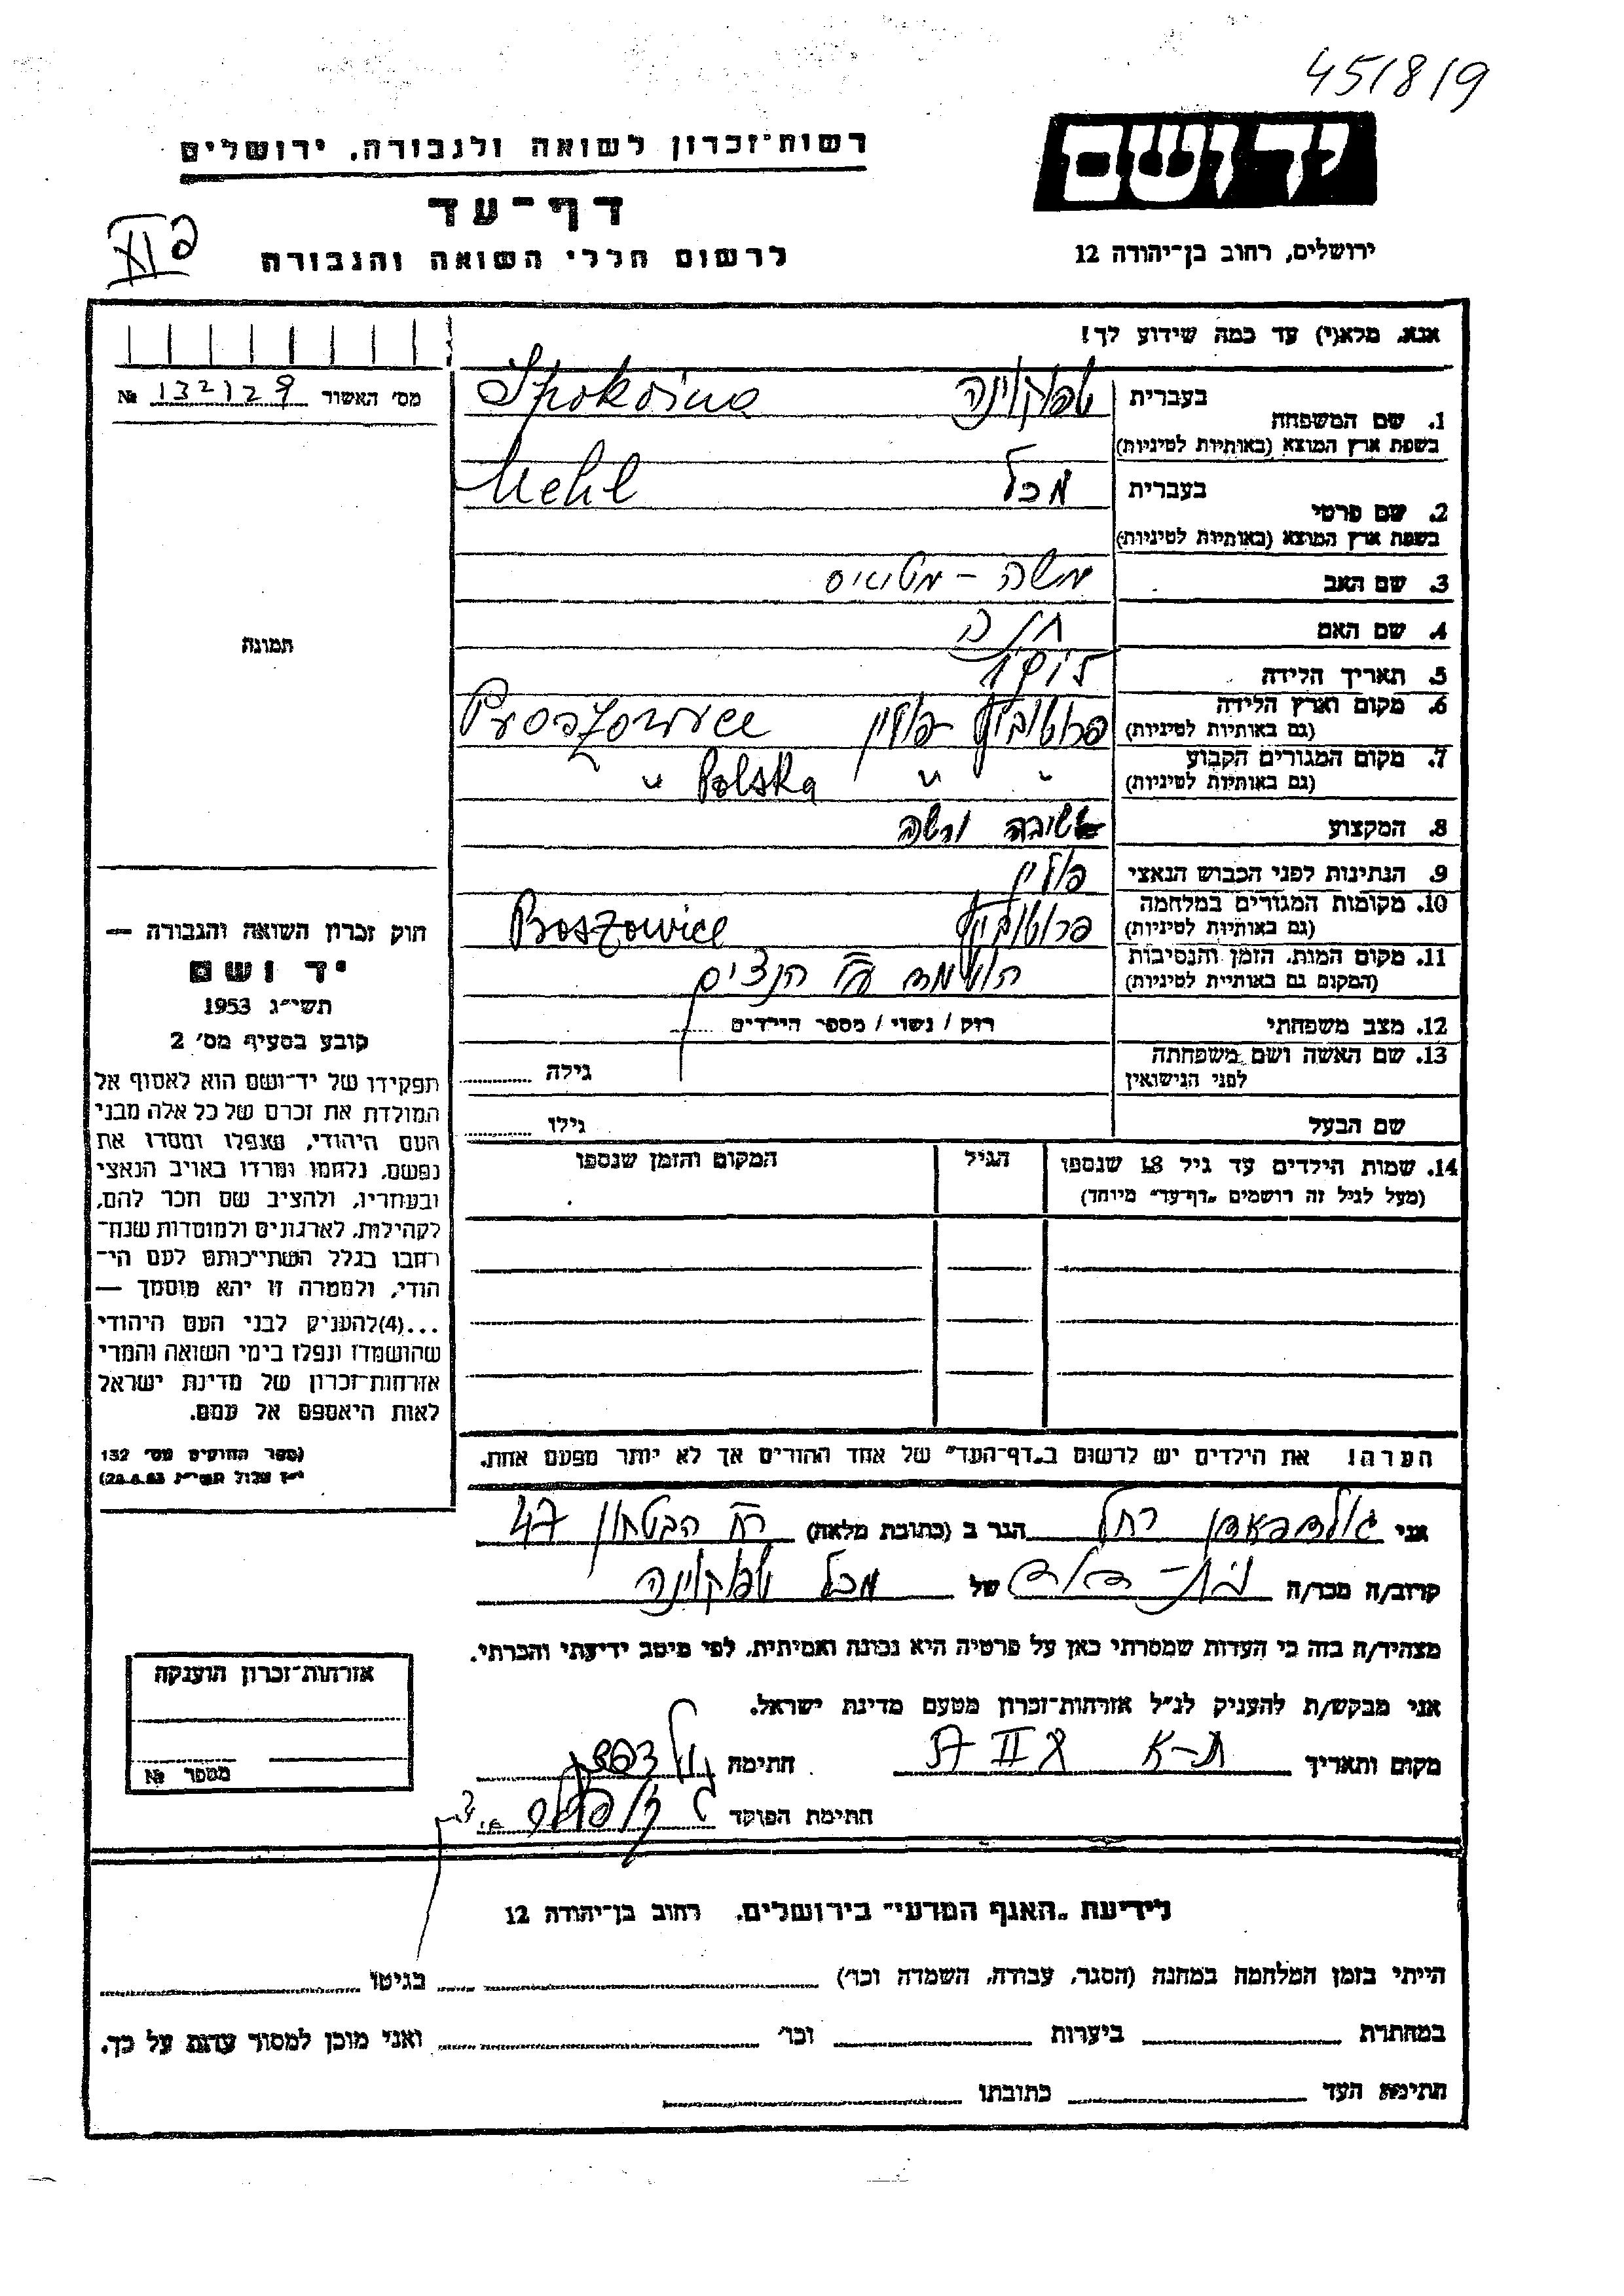 45/8/9
יד ושם
ירושלים, רחוב בן־יהודה 12
רשות־זכרון לשואה ולגבורה, ירושלים
דף־עד
לרשום חללי השואה והגבורה
אנא, מלא(י) עד כמה שידוע לך!
מס׳ האשור № 132129
1. שם המשפחה בעברית שפוקוינה Spokoina
בשפת ארץ המוצא (באותיות לטיניות)
2. שם פרטי בעברית מכל Mehl
בשפת ארץ המוצא (באותיות לטיניות)
3. שם האב משה -
4. שם האם חוה
5. תאריך הלידה
6. מקום וארץ הלידה פרושוביץ פולין Proszowice
(גם באותיות לטיניות)
7. מקום המגורים הקבוע " " Polska "
(גם באותיות לטיניות)
8. המקצוע
9. הנתינות לפני הכבוש הנאצי פולין
10. מקומות המגורים במלחמה פרושוביץ Proszowice
(גם באותיות לטיניות)
11. מקום המות, הזמן והנסיבות הושמד ע״י הנצים
(המקום גם באותיות לטיניות)
12. מצב משפחתי רווק / נשוי / מספר הילדים
13. שם האשה ושם משפחתה גילה
לפני הנישואין
שם הבעל גילו
14. שמות הילדים עד גיל 18 שנספו הגיל המקום והזמן שנספו
(מעל לגיל זה רושמים "דף־עד" מיוחד)
הערה! את הילדים יש לרשום ב"דף־העד" של אחד ההורים אך לא יותר מפעם אחת.
תמונה
חוק זכרון השואה והגבורה —
יד ושם
תשי״ג 1953
קובע בסעיף מס׳ 2
תפקידו של יד־ושם הוא לאסוף אל
המולדת את זכרם של כל אלה מבני
העם היהודי, שנפלו ומסרו את
נפשם, נלחמו ומרדו באויב הנאצי
ובעוזריו, ולהציב שם וזכר להם,
לקהילות, לארגונים ולמוסדות שנח־
רבו בגלל השתייכותם לעם הי־
הודי, ולמטרה זו יהא מוסמך —
...(4) להעניק לבני העם היהודי
שהושמדו ונפלו בימי השואה והמרי
אזרחות־זכרון של מדינת ישראל
לאות היאספם אל עמם.
(ספר החוקים מס׳ 132
אני רחל הגר ב (כתובת מלאה) רח הבטחון 47
קרוב/ה מכר/ה בת-דודה של מכל שפוקוינה
מצהיר/ה בזה כי העדות שמסרתי כאן על פרטיה היא נכונה ואמיתית, לפי מיטב ידיעתי והכרתי.
אני מבקש/ת להעניק לנ״ל אזרחות־זכרון מטעם מדינת ישראל.
מקום ותאריך ת-א חתימה
חתימת הפוקד
אזרחות־זכרון הוענקה
מספר №
לידיעת "האגף המדעי" בירושלים, רחוב בן־יהודה 12
הייתי בזמן המלחמה במחנה (הסגר, עבודה, השמדה וכו׳) בגיטו
במחתרת ביערות וכו׳ ואני מוכן למסור עדות על כך.
חתימת העד כתובתו